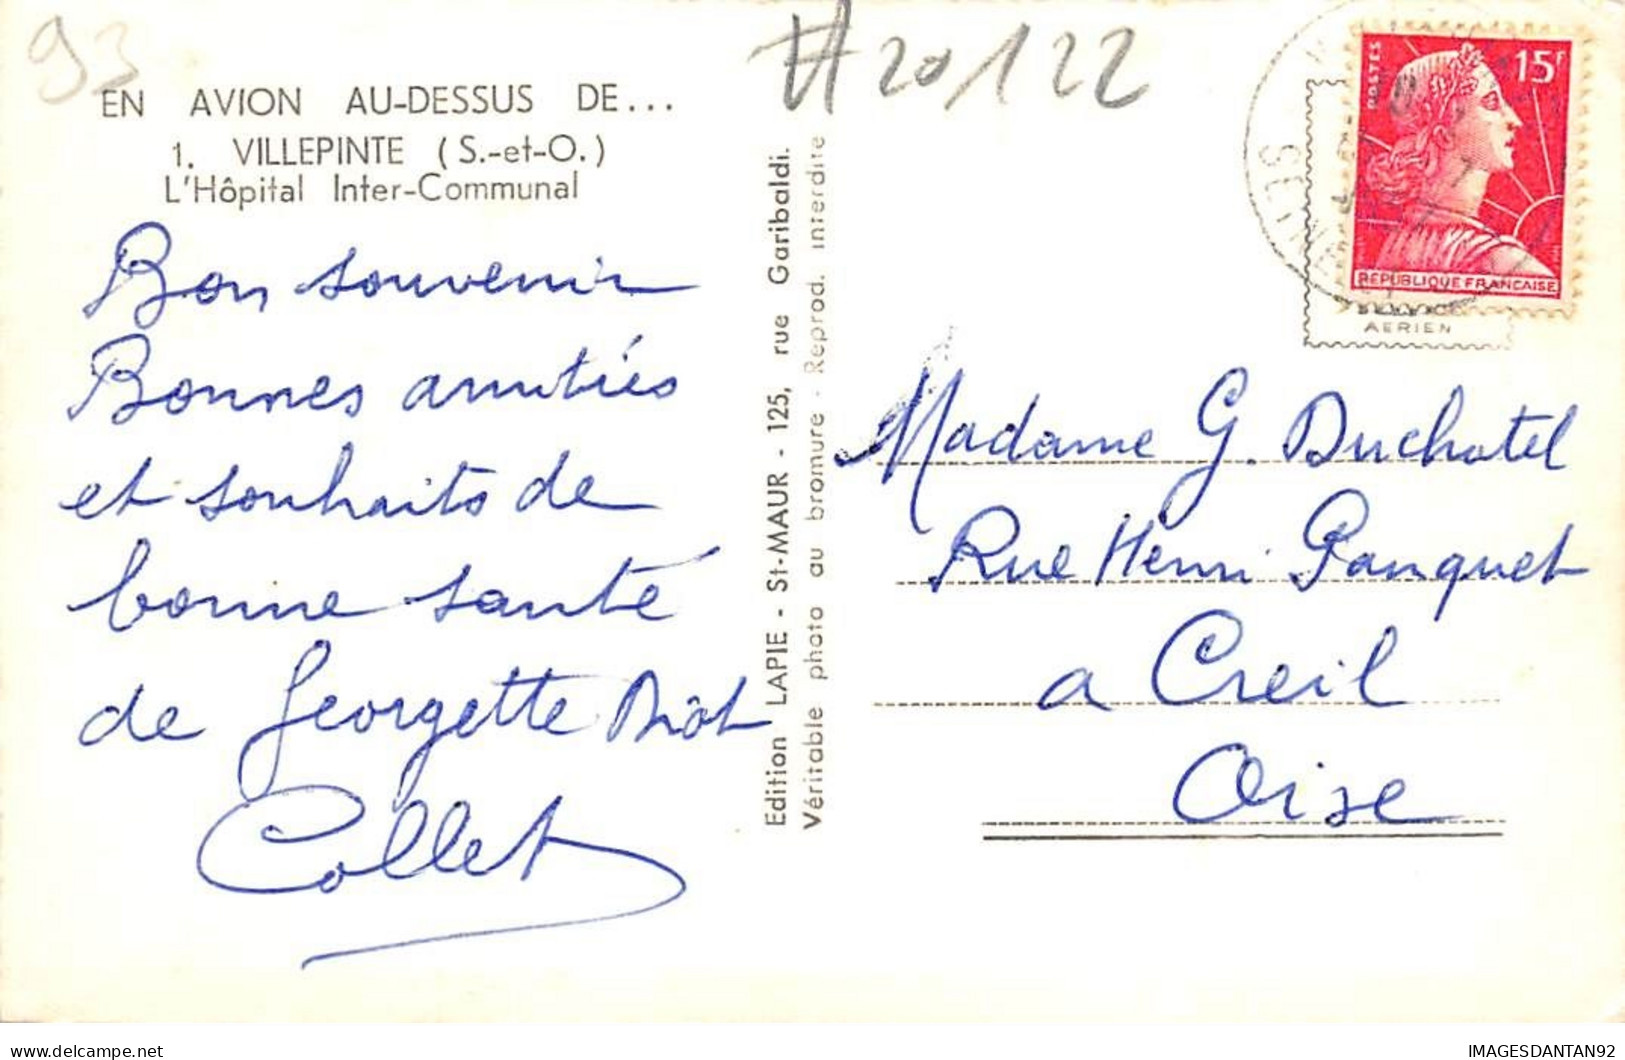 93
#20122
EN AVION AU-DESSUS DE...
1. VILLEPINTE (S.-et-O.)
L'Hôpital Inter-Communal
Bon souvenir
Bonnes amitiés
et souhaits de
bonne santé
de Georgette
Collet
Edition LAPIE - St-MAUR - 125, rue Garibaldi.
Véritable photo au bromure - Reprod. interdite
POSTES
15F
REPUBLIQUE FRANCAISE
AERIEN
SEINE
Madame G. Duchatel
Rue Henri Pauquet
a Creil
Oise
delcampe.net
IMAGESDANTAN92